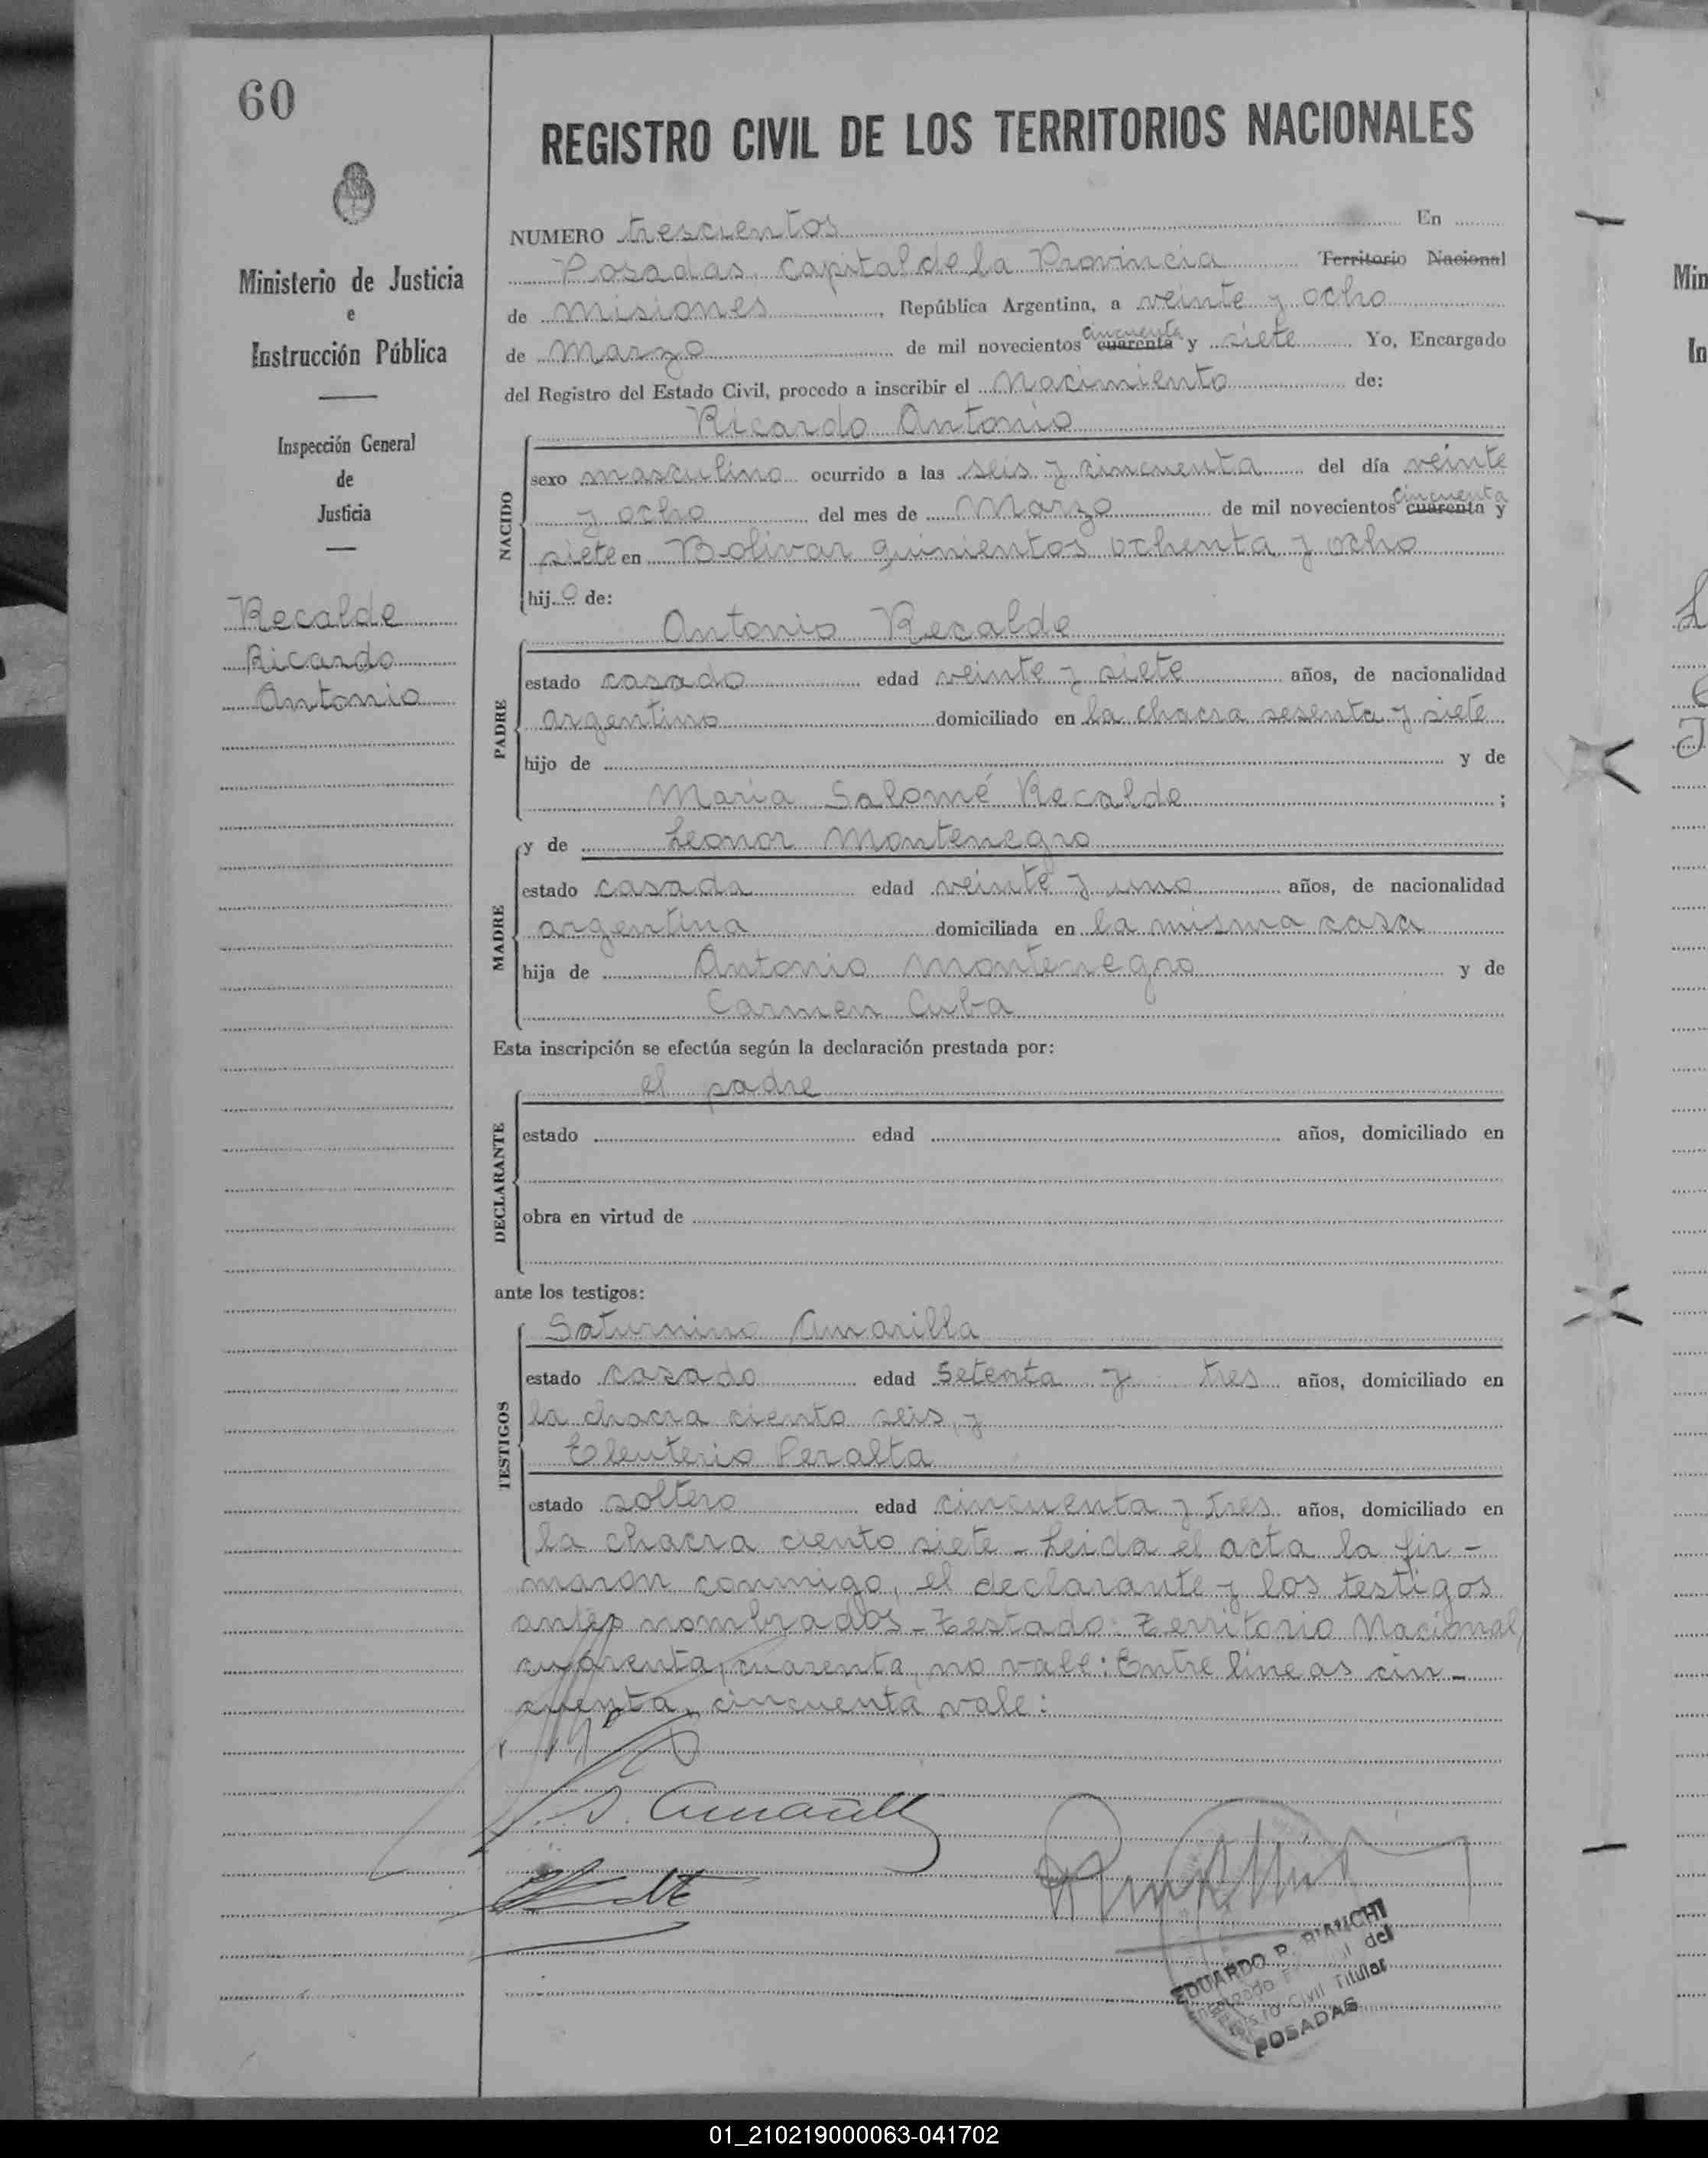 60
REGISTRO CIVIL DE LOS TERRITORIOS NACIONALES
Ministerio de Justicia
e
Instrucción Pública
Inspección General
de
Justicia
Recalde
Ricardo
Antonio
NUMERO trescientos En
Posadas, capital de la Provincia Territorio Nacional
de misiones, República Argentina, a veinte y ocho
de Marzo de mil novecientos cuarenta cincuenta y siete Yo, Encargado
del Registro del Estado Civil, procedo a inscribir el Nacimiento de:
Ricardo Antonio
NACIDO
sexo masculino ocurrido a las seis y cincuenta del día veinte
y ocho del mes de Marzo de mil novecientos cuarenta cincuenta y
siete en Bolivar quinientos ochenta y ocho
hijo de:
Antonio Recalde
PADRE
estado casado edad veinte y siete años, de nacionalidad
argentino domiciliado en la chacra sesenta y siete
hijo de y de
Maria Salomé Recalde ;
MADRE
y de Leonor Montenegro
estado casada edad veinte y uno años, de nacionalidad
argentina domiciliada en la misma casa
hija de Antonio Montenegro y de
Carmen Cuba
Esta inscripción se efectúa según la declaración prestada por:
el padre
DECLARANTE
estado edad años, domiciliado en
obra en virtud de
ante los testigos:
TESTIGOS
Saturnino Amarilla
estado casado edad Setenta y tres años, domiciliado en
la chacra ciento seis, y
Eleuterio Peralta
estado soltero edad cincuenta y tres años, domiciliado en
la chacra ciento siete - Leida el acta la fir-
maron conmigo, el declarante y los testigos
antes nombrados - Testado: Territorio Nacional,
cuarenta, cuarenta, no vale: Entre lineas cin-
cuenta, cincuenta vale:
S. Amarilla
EDUARDO R. BIANCHI
Encargado del
Registro Civil Titular
POSADAS
Min
In
01_210219000063-041702